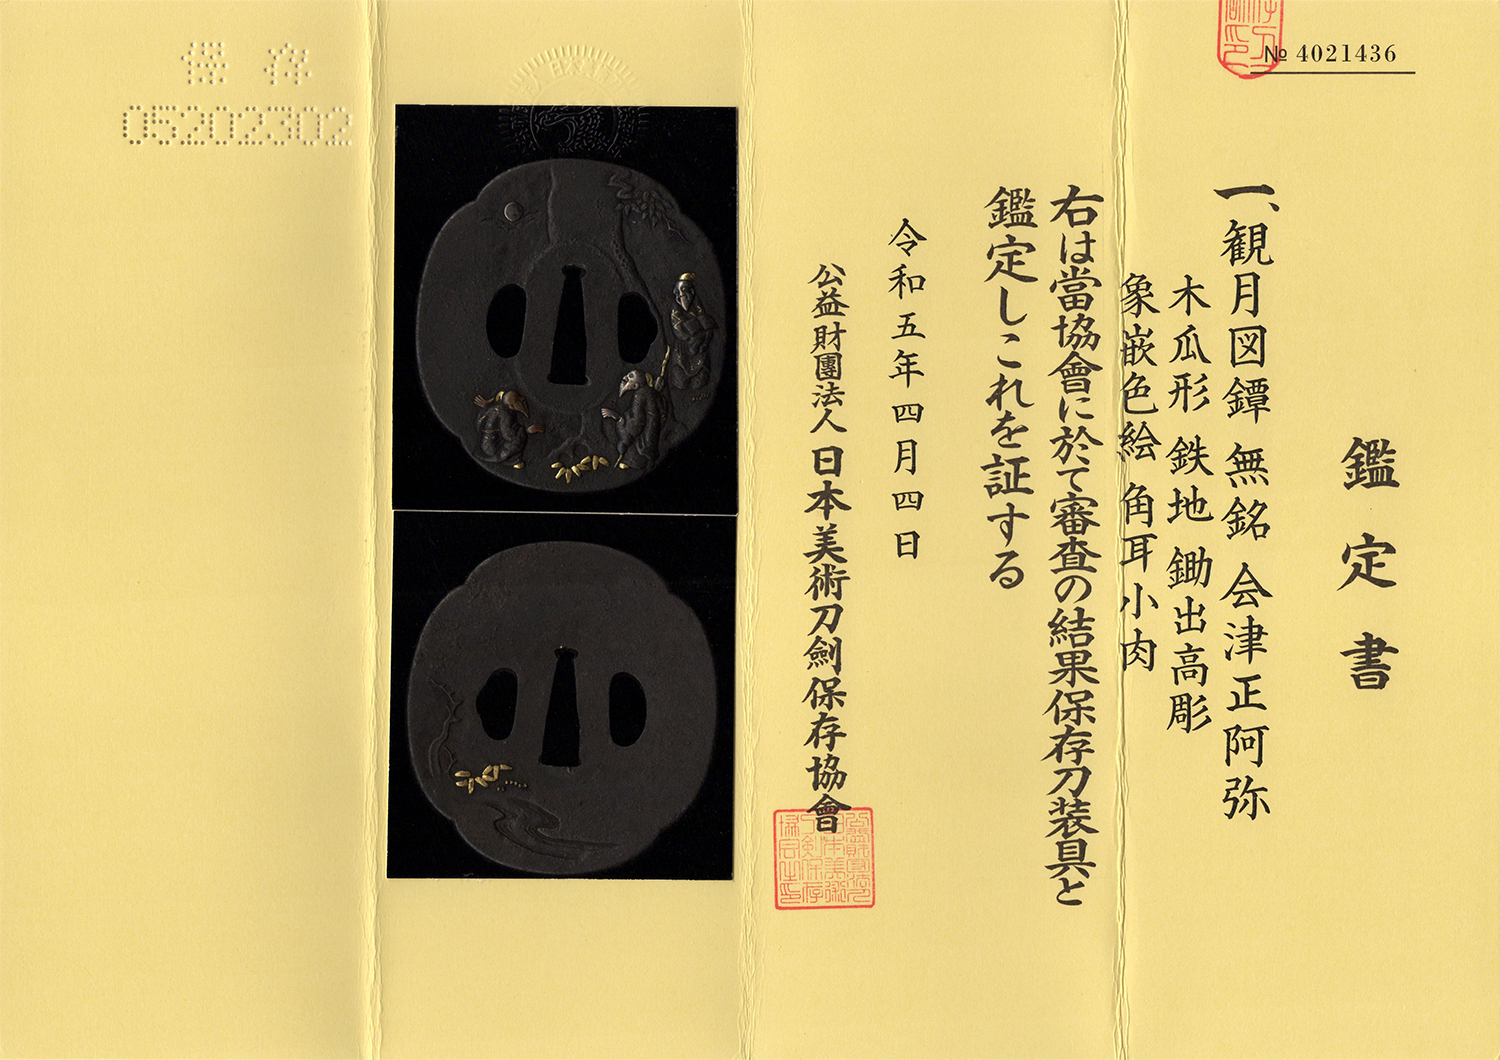 № 4021436
鑑定書
一、観月図鐔 無銘 会津正阿弥
木瓜形 鉄地 鋤出高彫
象嵌色絵 角耳小肉
右は當協會に於て審査の結果保存刀装具と
鑑定しこれを証する
令和五年四月四日
公益財團法人 日本美術刀劍保存協會
保存
05202302